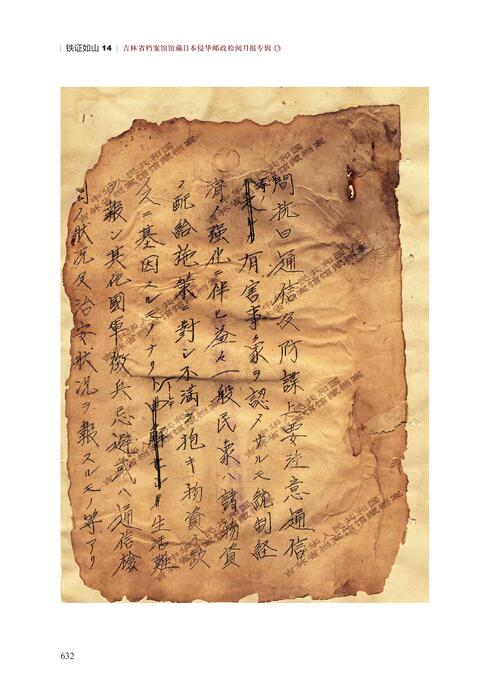 铁证如山 14 吉林省档案馆馆藏日本侵华邮政检阅月报专辑
間抗日通信及防諜上要注意通信
等ノ有害事象ヲ認メサルモ統制経
済ノ強化ニ伴ヒ益々一般民衆ハ諸物資
ノ配給施策ニ対シ不満ヲ抱キ物資ノ欠
ニ基因スルモノナリトシテ生活難
ヲ報シ其他國軍徴兵忌避或ハ通信検
ノ状況及治安状況ヲ報スルモノ等アリ
632